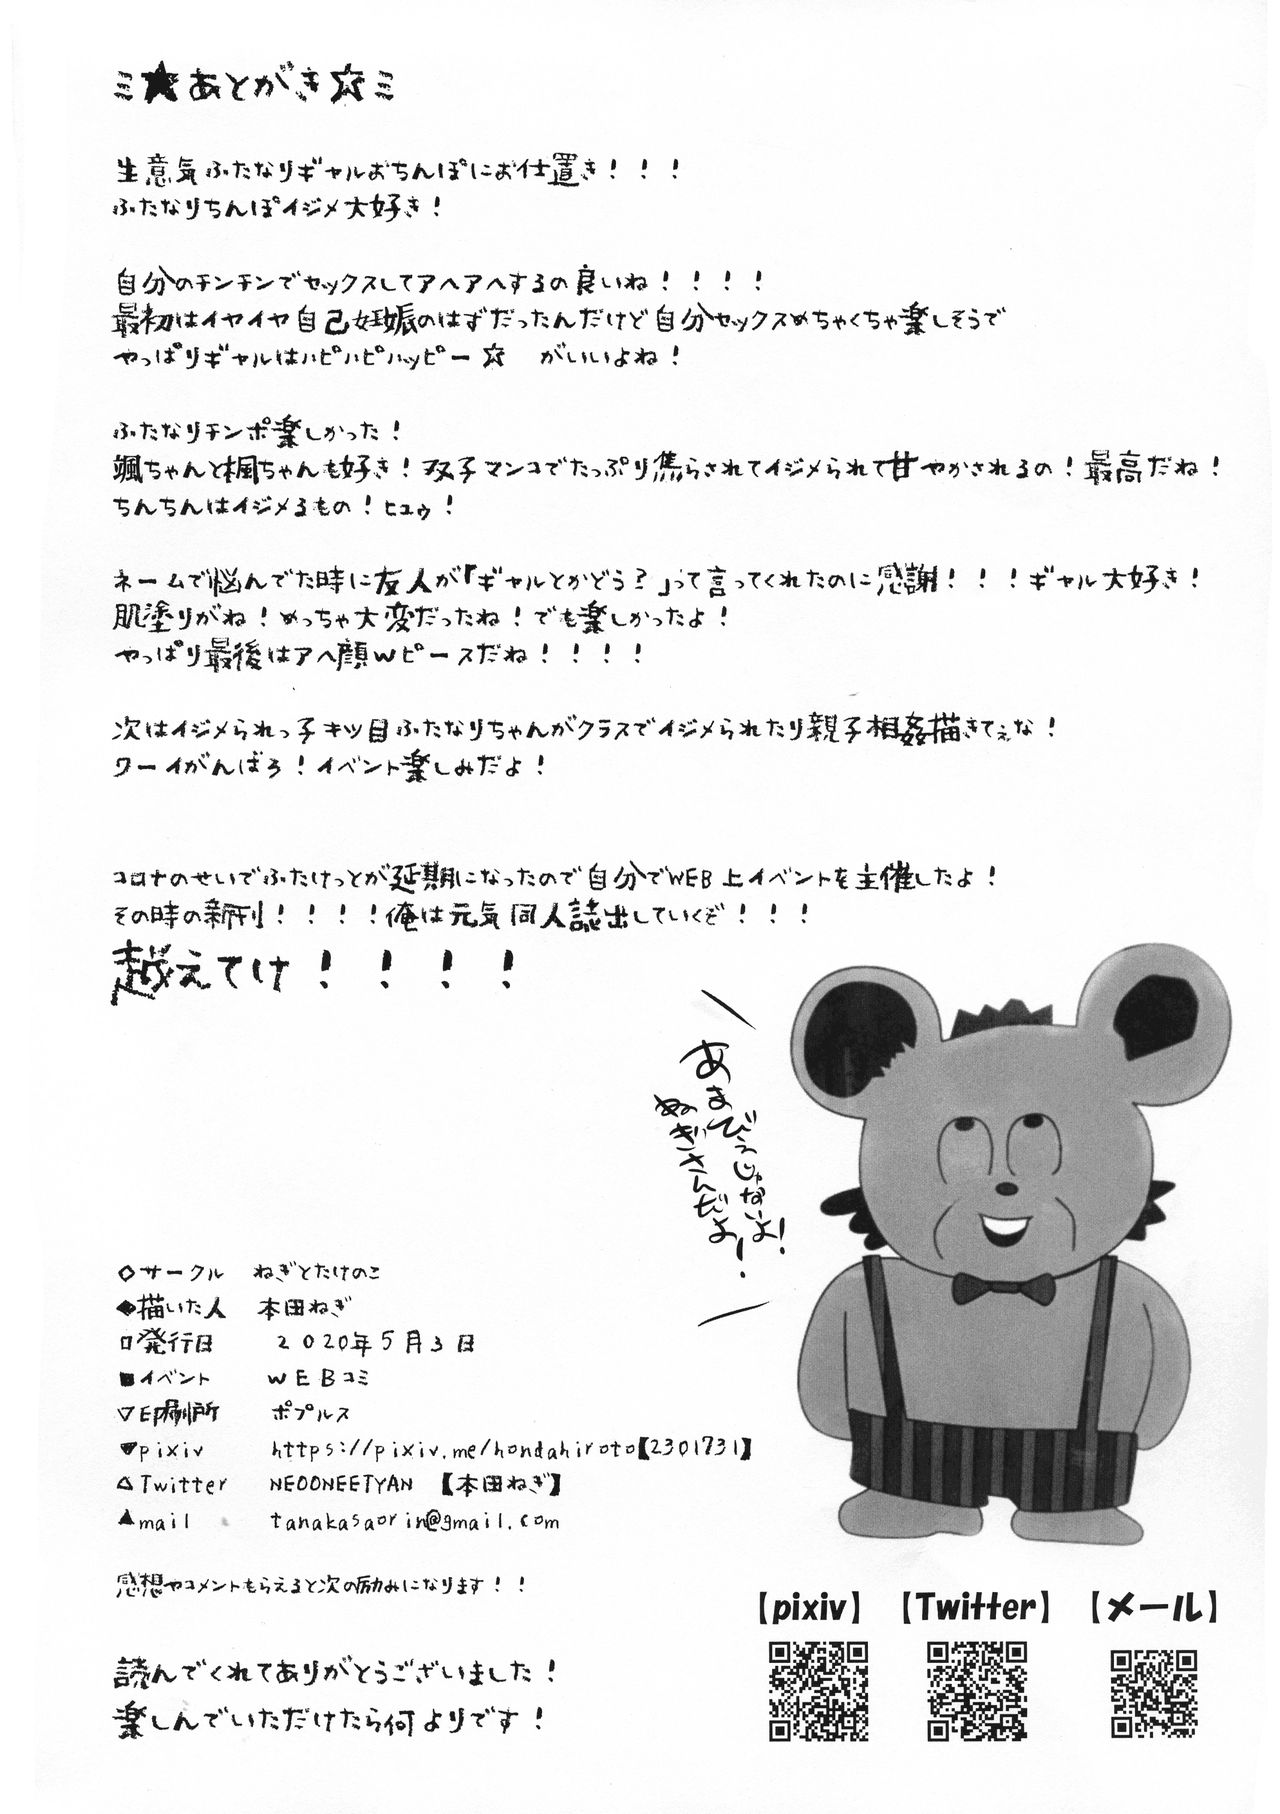 ミ★あとがき☆ミ
生意気ふたなりギャルおちんぽにお仕置き！！！
ふたなりちんぽイジメ大好き！
自分のチンチンでセックスしてアヘアヘするの良いね！！！！
最初はイヤイヤ自己妊娠のはずだったんだけど自分セックスめちゃくちゃ楽しそうで
やっぱりギャルはハピハピハッピー☆　がいいよね！
ふたなりチンポ楽しかった！
颯ちゃんと楓ちゃんも好き！双子マンコでたっぷり焦らされてイジメられて甘やかされるの！最高だね！
ちんちんはイジメるもの！ヒュゥ！
ネームで悩んでた時に友人が「ギャルとかどう？」って言ってくれたのに感謝！！！ギャル大好き！
肌塗りがね！めっちゃ大変だったね！でも楽しかったよ！
やっぱり最後はアヘ顔Wピースだね！！！！
次はイジメられっ子キツ目ふたなりちゃんがクラスでイジメられたり親子相姦描きてぇな！
ワーイがんばろ！イベント楽しみだよ！
コロナのせいでふたけっとが延期になったので自分でWEB上イベントを主催したよ！
その時の新刊！！！！俺は元気同人誌出していくぞ！！！
越えてけ！！！！
あまびえじゃないよ！
ねぎさんだよー！
◇サークル　ねぎとたけのこ
◆描いた人　本田ねぎ
□発行日　2020年5月3日
■イベント　WEBコミ
▽印刷所　ポプルス
▼pixiv　https://pixiv.me/hondahiroto【2301731】
△Twitter　NEOONEETYAN　【本田ねぎ】
▲mail　tanakasaorin@gmail.com
感想やコメントもらえると次の励みになります！！
読んでくれてありがとうございました！
楽しんでいただけたら何よりです！
【pixiv】　【Twitter】　【メール】